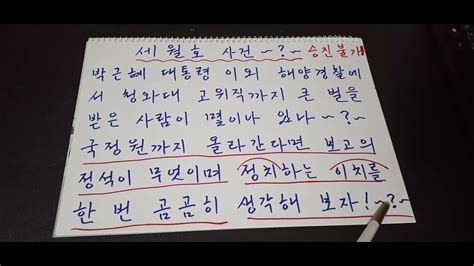 세월호 사건 ~?~ 승진불가!
박근혜 대통령 이외 해양경찰에
서 청와대 고위직까지 큰 벌을
받은 사람이 몇이나 있나 ~?~
국정원까지 올라간다면 보고의
정석이 무엇이며 정치하는 이치를
한 번 곰곰히 생각해 보자! ~?~